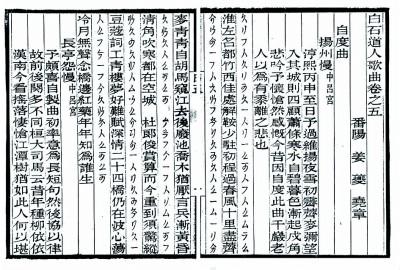 白石道人歌曲卷之五
番陽 姜夔 堯章
自度曲
揚州慢中呂宮
淳熙丙申至日予過維揚夜雪初霽薺麥彌望
入其城則四顧蕭條寒水自碧暮色漸起戍角
悲吟予懷愴然感慨今昔因自度此曲千巖老
人以為有黍離之悲也
淮左名都竹西佳處解鞍少駐初程過春風十里盡薺
麥青青自胡馬窺江去後廢池喬木猶厭言兵漸黃昏
清角吹寒都在空城 杜郎俊賞算而今重到須驚縱
豆蔻詞工青樓夢好難賦深情二十四橋仍在波心蕩
冷月無聲念橋邊紅藥年年知為誰生
長亭怨慢中呂宮
予頗喜自製曲初率意為長短句然後協以律
故前後闋多不同桓大司馬云昔年種柳依依
漢南今看搖落悽愴江潭樹猶如此人何以堪